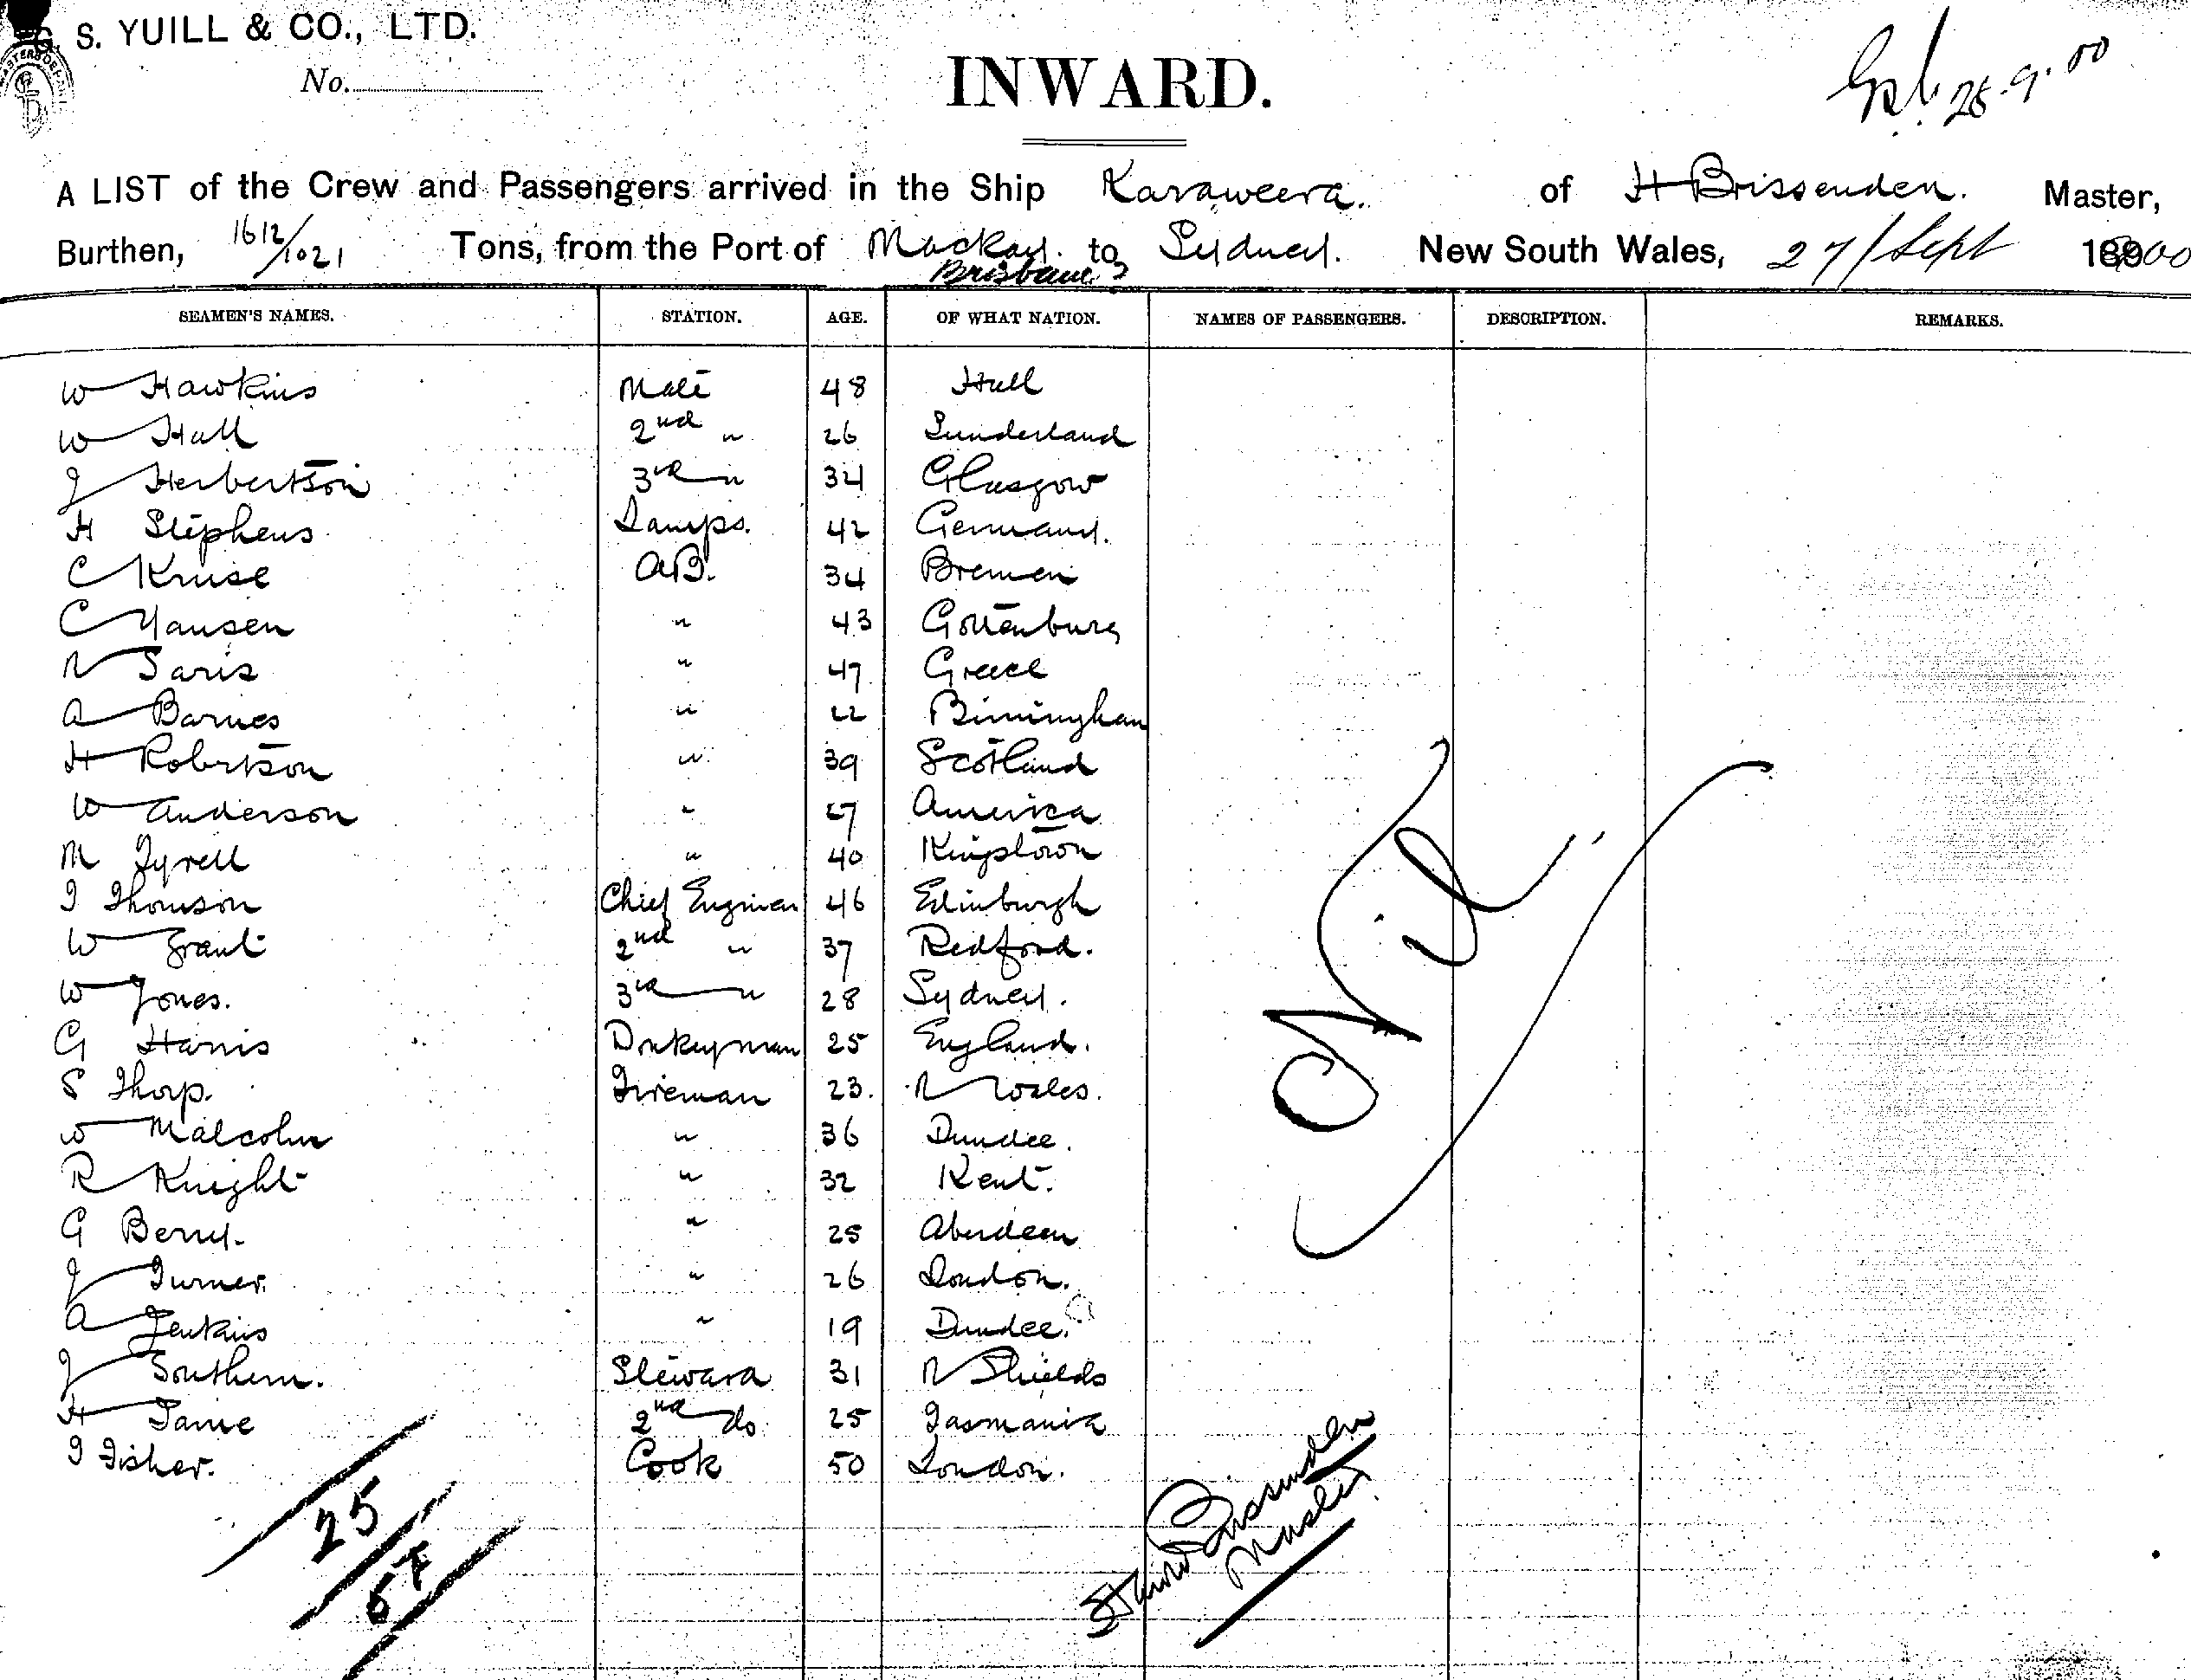 G. S. YUILL & CO., LTD.
No.
INWARD.
28.9.00
A LIST of the Crew and Passengers arrived in the Ship Karaweera. of H Brissenden. Master,
Burthen, 1612/1021 Tons, from the Port of Mackay. to Sydney. New South Wales, 27/Sept 1900
Brisbane
SEAMEN'S NAMES. STATION. AGE. OF WHAT NATION. NAMES OF PASSENGERS. DESCRIPTION. REMARKS.
W Hawkins Mate 48 Hull
W Hall 2nd " 26 Sunderland
J Herbertson 3rd " 34 Glasgow
H Stephens Lamps. 42 Germany.
C Kruse AB. 34 Bremen
C Yansen " 43 Gottenburg
N Saris " 47 Greece
A Barnes " 22 Birmingham
H Robertson " 39 Scotland
W Anderson " 27 America
M Tyrell " 40 Kingstown
T Thomson Chief Engineer 46 Edinburgh
W Grant 2nd " 37 Redford.
W Jones. 3rd " 28 Sydney.
G Harris Donkeyman 25 England.
S Thorp. Fireman 23. N Wales.
W Malcolm " 36 Dundee.
R Knight " 32 Kent.
G Berry " 25 Aberdeen
J Turner. " 26 London.
A Jenkins " 19 Dundee.
J Southern. Steward 31 N Shields
H Jame 2nd do. 25 Tasmania
T Fisher. Cook 50 London.
Nil
25
Brissenden
Master